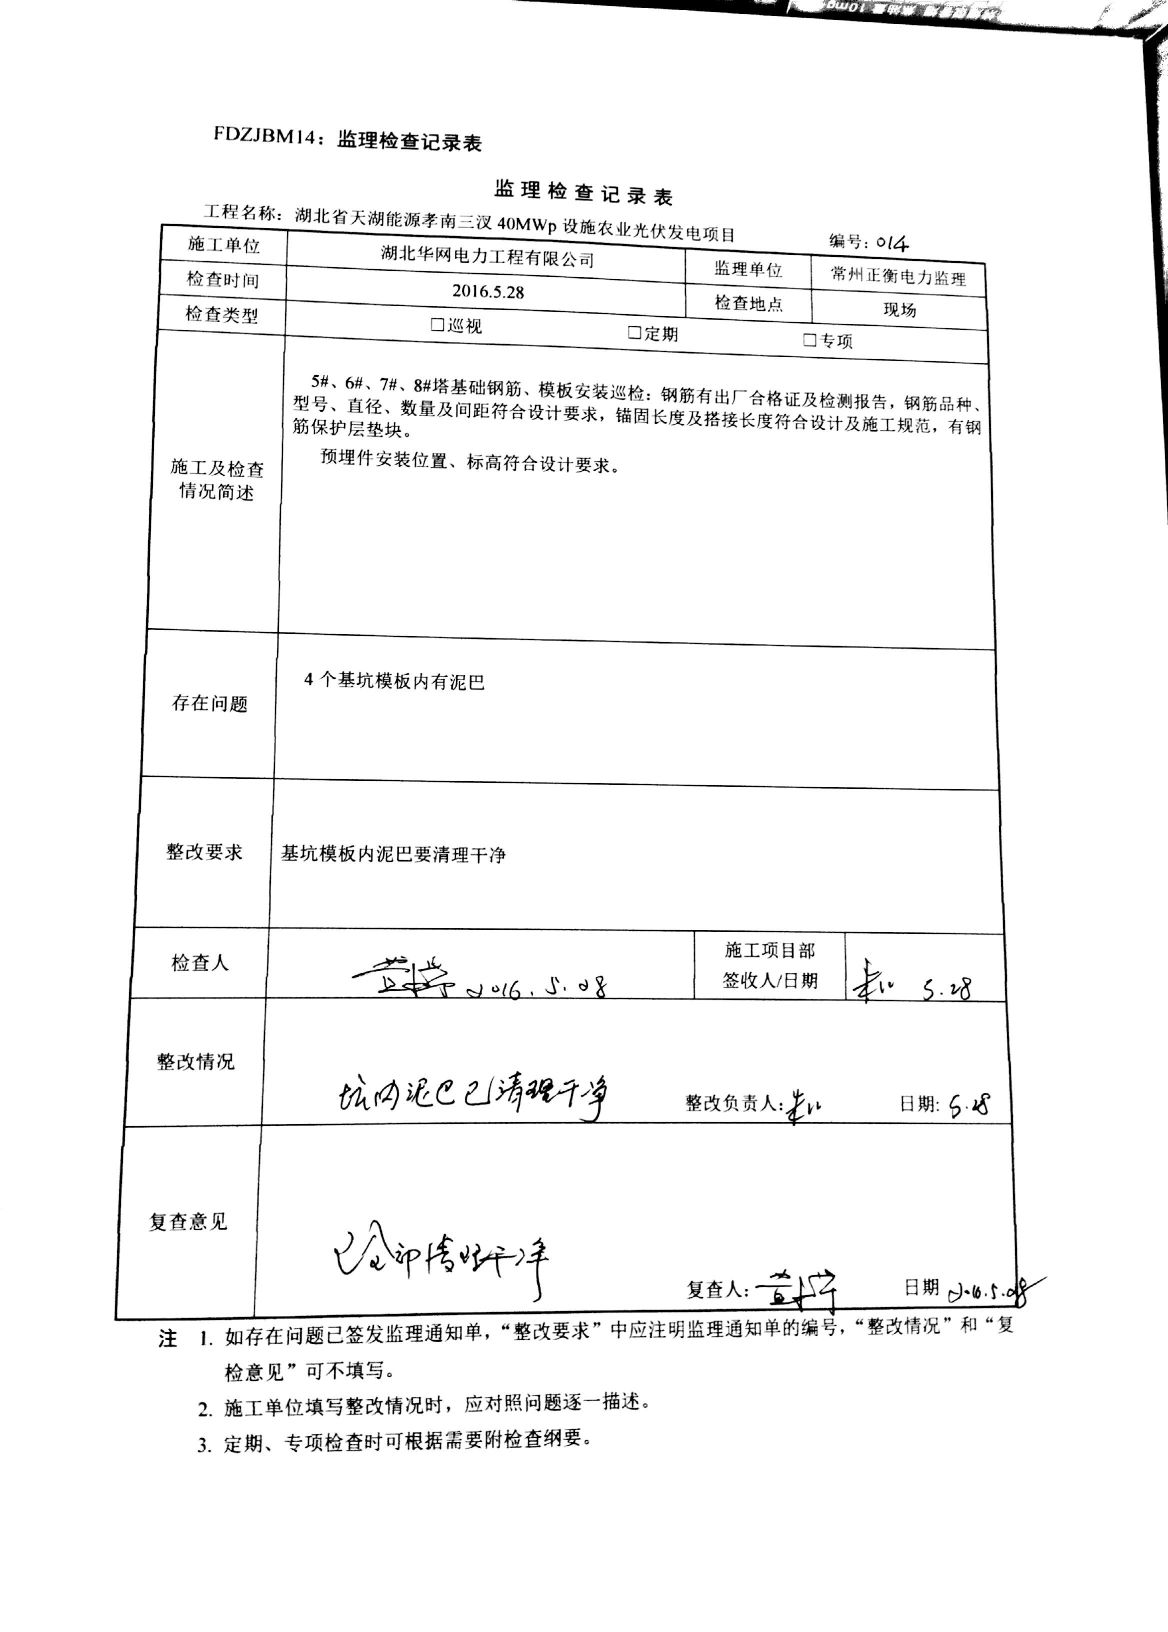 FDZJBM14：监理检查记录表
监理检查记录表
工程名称：湖北省天湖能源孝南三汊 40MWp 设施农业光伏发电项目 编号：014
施工单位 湖北华网电力工程有限公司 监理单位 常州正衡电力监理
检查时间 2016.5.28 检查地点 现场
检查类型 □巡视 □定期 □专项
施工及检查
情况简述
5#、6#、7#、8#塔基础钢筋、模板安装巡检：钢筋有出厂合格证及检测报告，钢筋品种、
型号、直径、数量及间距符合设计要求，锚固长度及搭接长度符合设计及施工规范，有钢
筋保护层垫块。
预埋件安装位置、标高符合设计要求。
存在问题 4 个基坑模板内有泥巴
整改要求 基坑模板内泥巴要清理干净
检查人 2016.5.28
施工项目部
签收人/日期 5.28
整改情况 坑内泥巴已清理干净 整改负责人: 日期: 5.28
复查意见 已全部清理干净
复查人: 日期 2016.5.28
注 1. 如存在问题已签发监理通知单，“整改要求”中应注明监理通知单的编号，“整改情况”和“复
检意见”可不填写。
2. 施工单位填写整改情况时，应对照问题逐一描述。
3. 定期、专项检查时可根据需要附检查纲要。